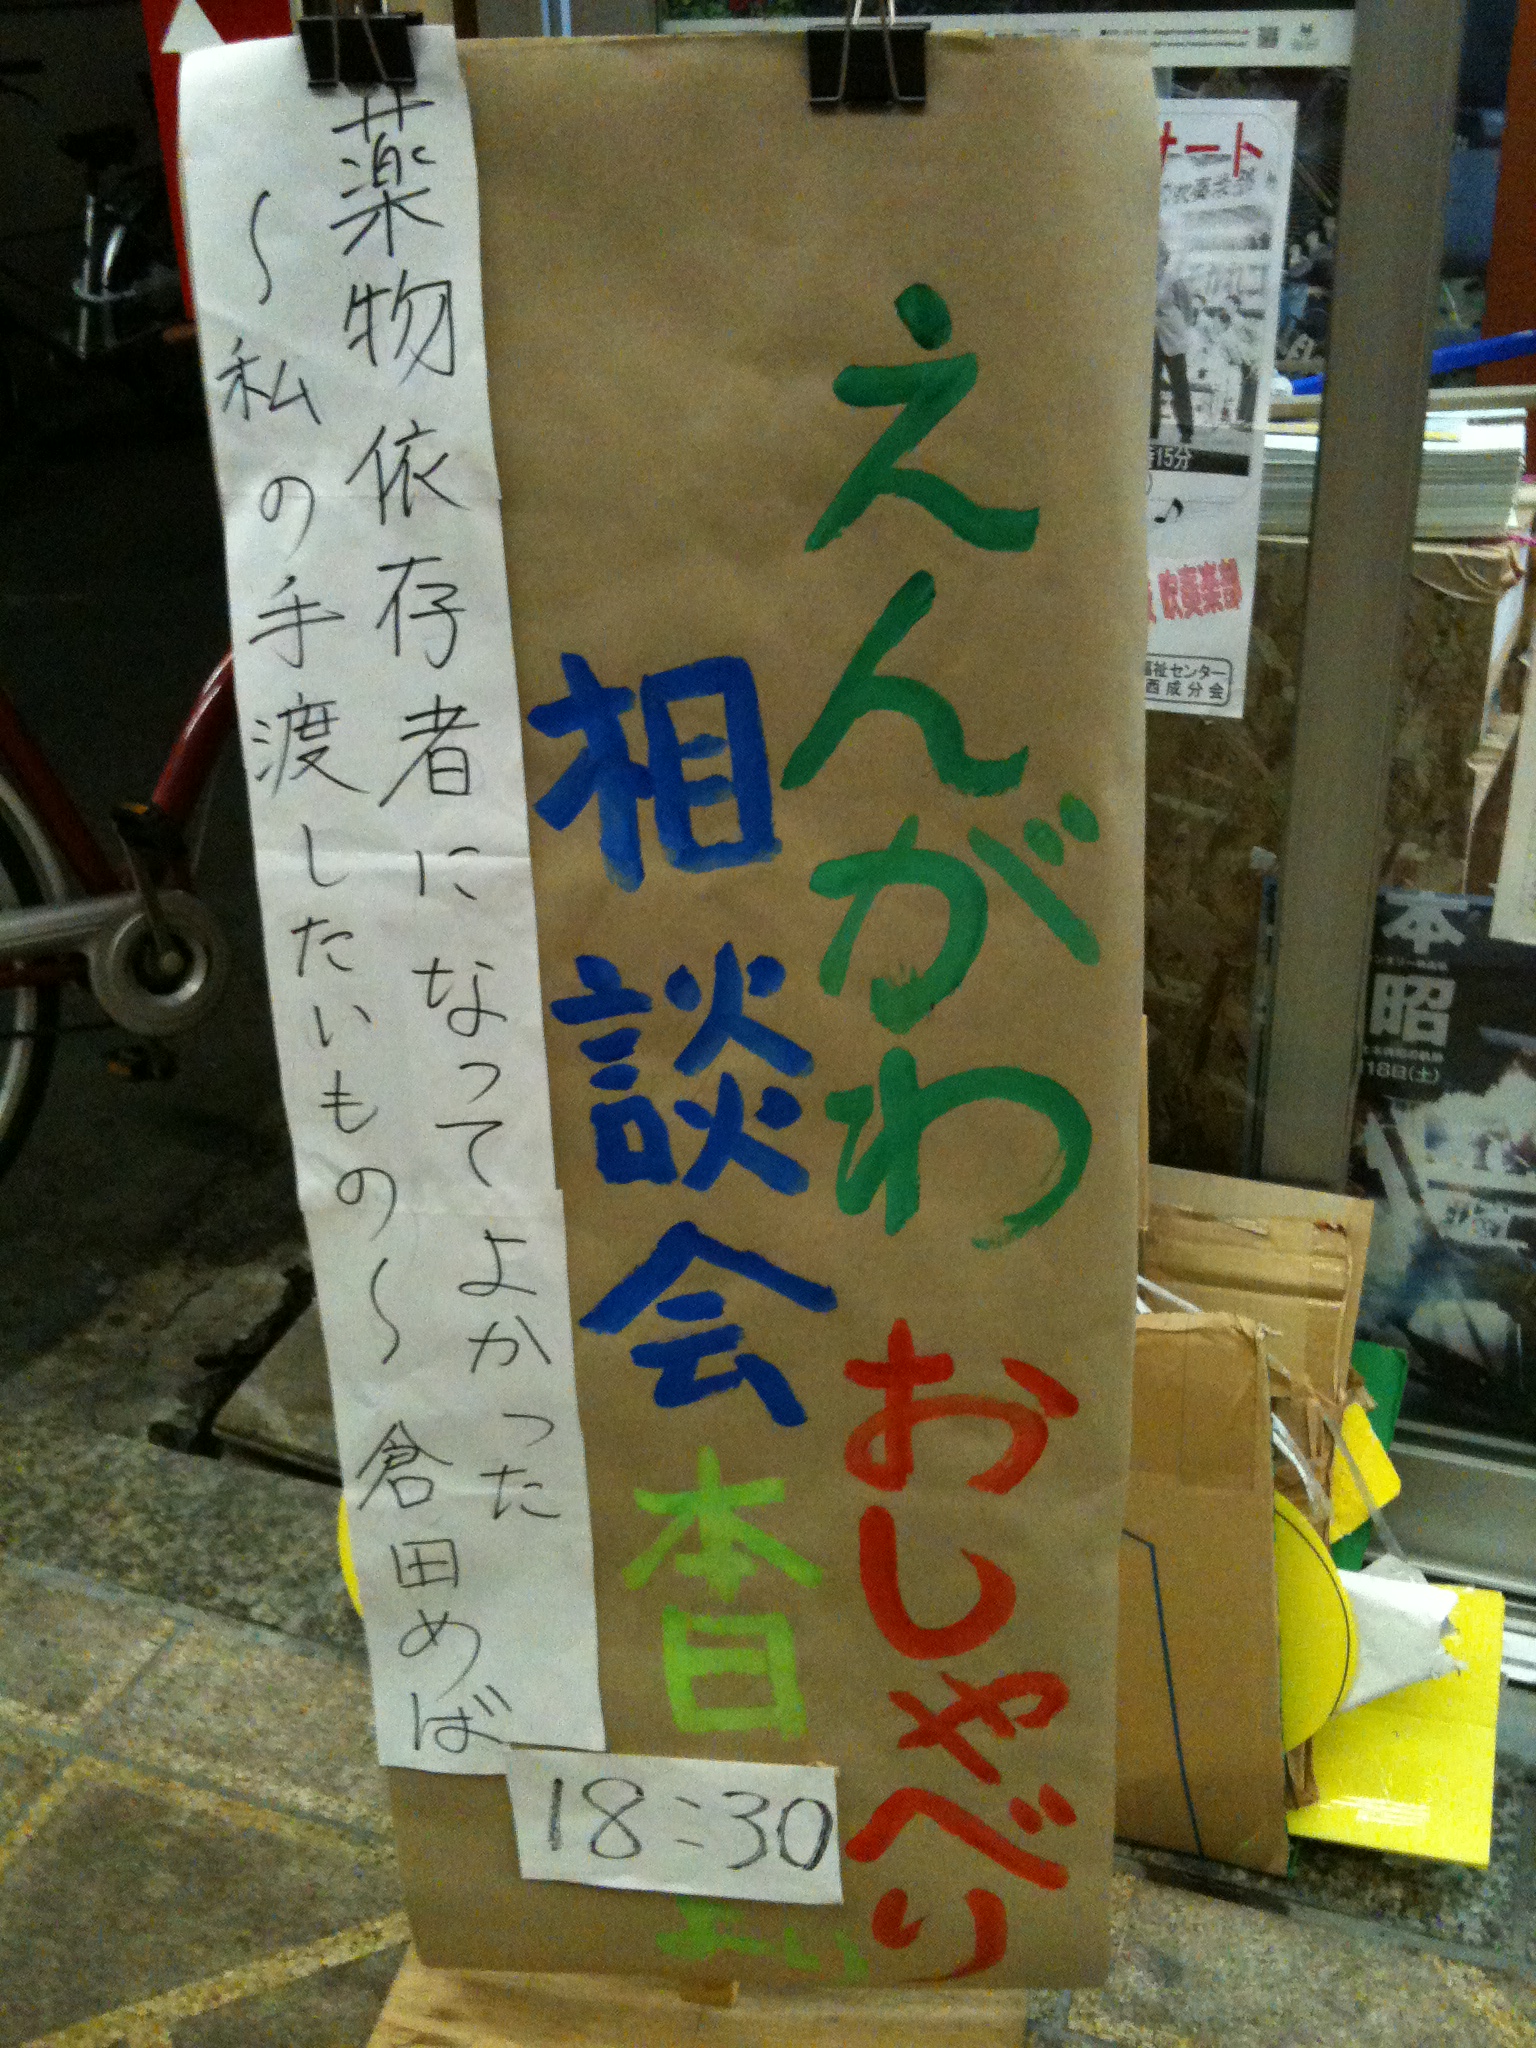 えんがわ おしゃべり
相談会 本日
18:30
より
薬物依存者になってよかった
〜私の手渡したいもの〜 倉田めば
ート
15分
吹奏楽部
福祉センター
西成分会
本
昭
18日(土)